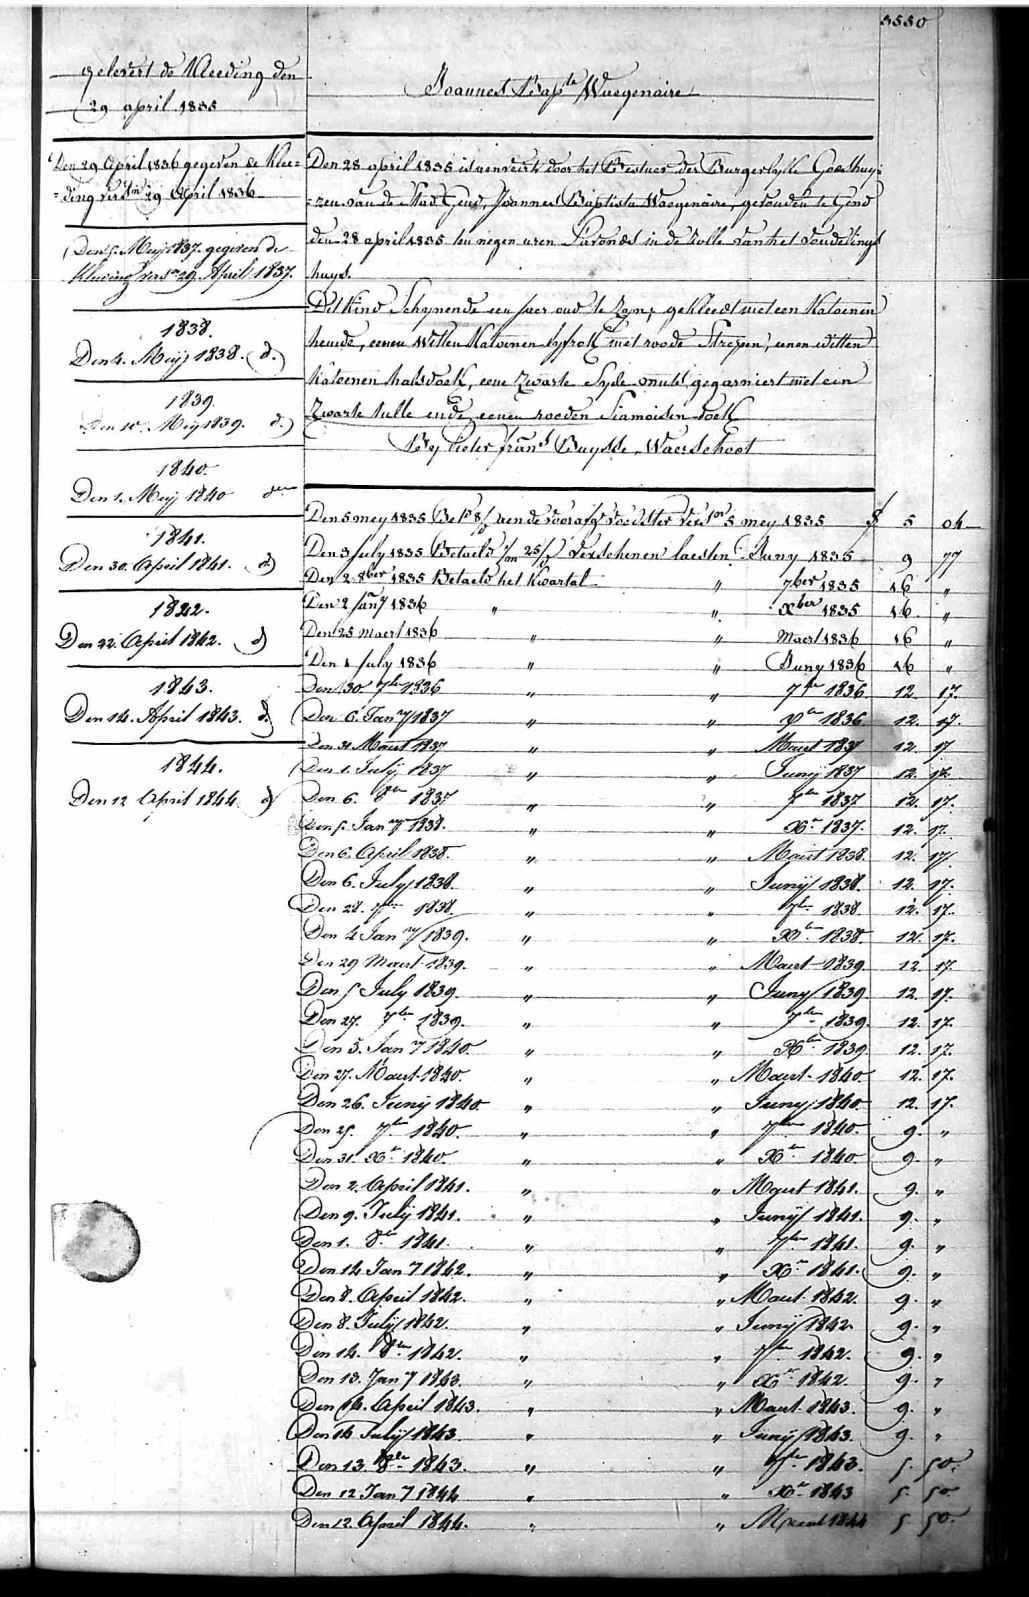 5550
gelevert de Kleeding den
29 april 1835
Joannes Bapte Waegenaire
Den 29 April 1836 gegeven de Klee=
=ding verstn 29 April 1836
Den 5. Meij 1837. gegeven de
Kleeding verstn 29. April 1837.
1838.
Den 4. Meij 1838. d.)
1839.
Den 10. Meij 1839. d.)
1840.
Den 1. Meij 1840
1841.
Den 30. April 1841. d)
1842.
Den 22. April 1842. d)
1843.
Den 14. April 1843. d.)
1844.
Den 12 April 1844. d)
Den 28 april 1835 is aenveert door het Bestuer der Burgerlyke Godshuy=
=zen van de Stad Gend, Joannes Baptista Waegenaire, gevonden te Gend
den 28 april 1835 ten negen uren S'avonds in de rolle van het vondelings
huys.
Dit Kind Schynende een jaer oud te Zyn, gekleedt met een Katoenen
hemde, eenen Witten Katoenen lyfrok met roode Strepen, eenen witten
Katoenen halsdoek, eene Zwarte Syde muts gegarniert met een
Zwarte tulle ende eenen rooden Siamoisen doek
By Pieter frans Buysse, Waerschoot
Den 5 mey 1835 aen de voorafge voedster verst 5 mey 1835 f 5 04
Den 3 July 1835 Betaeld 25/ verschenen laesten Juny 1835 9 77
Den 2 8ber 1835 Betaeld het Kwartal " 7ber 1835 16 "
Den 2 Jany 1836 " " Xber 1835 16 "
Den 25 maert 1836 " " Maert 1836 16 "
Den 1 July 1836 " " Juny 1836 16 "
Den 30 7ber 1836 " " 7ber 1836 12. 17.
Den 6. Jany 1837 " " Xber 1836 12. 17.
Den 31 Maert 1837 " " Maert 1837 12. 17
Den 1. Julij 1837 " " Junij 1837 12. 17.
Den 6. 8ber 1837 " " 7ber 1837 12. 17.
Den 5. Jany 1838. " " Xr 1837. 12. 17.
Den 6. April 1838. " " Maert 1838. 12. 17.
Den 6. July 1838. " " Junij 1838. 12. 17.
Den 28. 7ber 1838. " " 7ber 1838. 12. 17.
Den 4 Jany 1839. " " Xber 1838. 12. 17.
Den 29 Maert 1839. " " Maert 1839. 12. 17.
Den 5 July 1839. " " Juny 1839. 12. 17.
Den 27. 7ber 1839. " " 7ber 1839. 12. 17.
Den 3. Jany 1840. " " Xber 1839. 12. 17.
Den 27. Maert 1840. " " Maert 1840. 12. 17.
Den 26. Junij 1840. " " Juny 1840. 12. 17.
Den 25. 7ber 1840. " " 7ber 1840. 9. "
Den 31. Xr 1840. " " Xr 1840. 9. "
Den 2. April 1841. " " Maert 1841. 9. "
Den 9. Julij 1841. " " Junij 1841. 9. "
Den 1. 8br 1841. " " 7ber 1841. 9. "
Den 14 Jany 1842. " " Xr 1841. 9. "
Den 8. April 1842. " " Maert 1842. 9. "
Den 8. Julij 1842. " " Junij 1842. 9. "
Den 14. 8ber 1842. " " 7ber 1842. 9. "
Den 13. Jany 1843. " " Xr 1842. 9. "
Den 14. April 1843. " " Maert 1843. 9. "
Den 14 Julij 1843. " " Junij 1843. 9. "
Den 13. 8br 1843. " " 7br 1843. 5. 50.
Den 12 Jany 1844 " " Xr 1843 5. 50
Den 12. April 1844. " " Maert 1844 5 50.